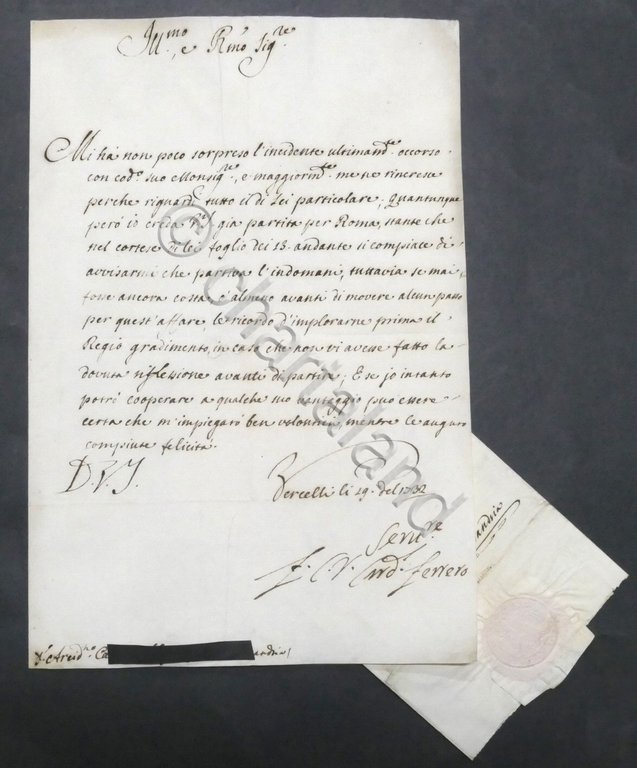 Ill.mo e R.mo Sig.re
Mi hà non poco sorpreso l'incidente ultimam.te occorso
con cod.o suo Monsig.re, e maggiorm.te me ne rincresce
perche riguardi tutto il di Lei particolare; Quantunque
però io creda già partita per Roma, stante che
nel cortese di lei foglio dei 15. andante si compiace di
avvisarmi che partiva l'indomani, tuttavia se mai
fosse ancora costà, ò almeno avanti di movere alcun passo
per quest'affare, le ricordo d'implorarne prima il
Regio gradimento, in caso che non vi avesse fatto la
dovuta riflessione avanti di partire; E se jo intanto
potrò cooperare a qualche suo vantaggio può essere
certa che m'impiegarò ben volontieri, mentre le auguro
compiute felicità.
D.V.S.
Vercelli li 19. del 1732
Serv.re
F. C. V. Card. Ferrero
andria
© chartaland